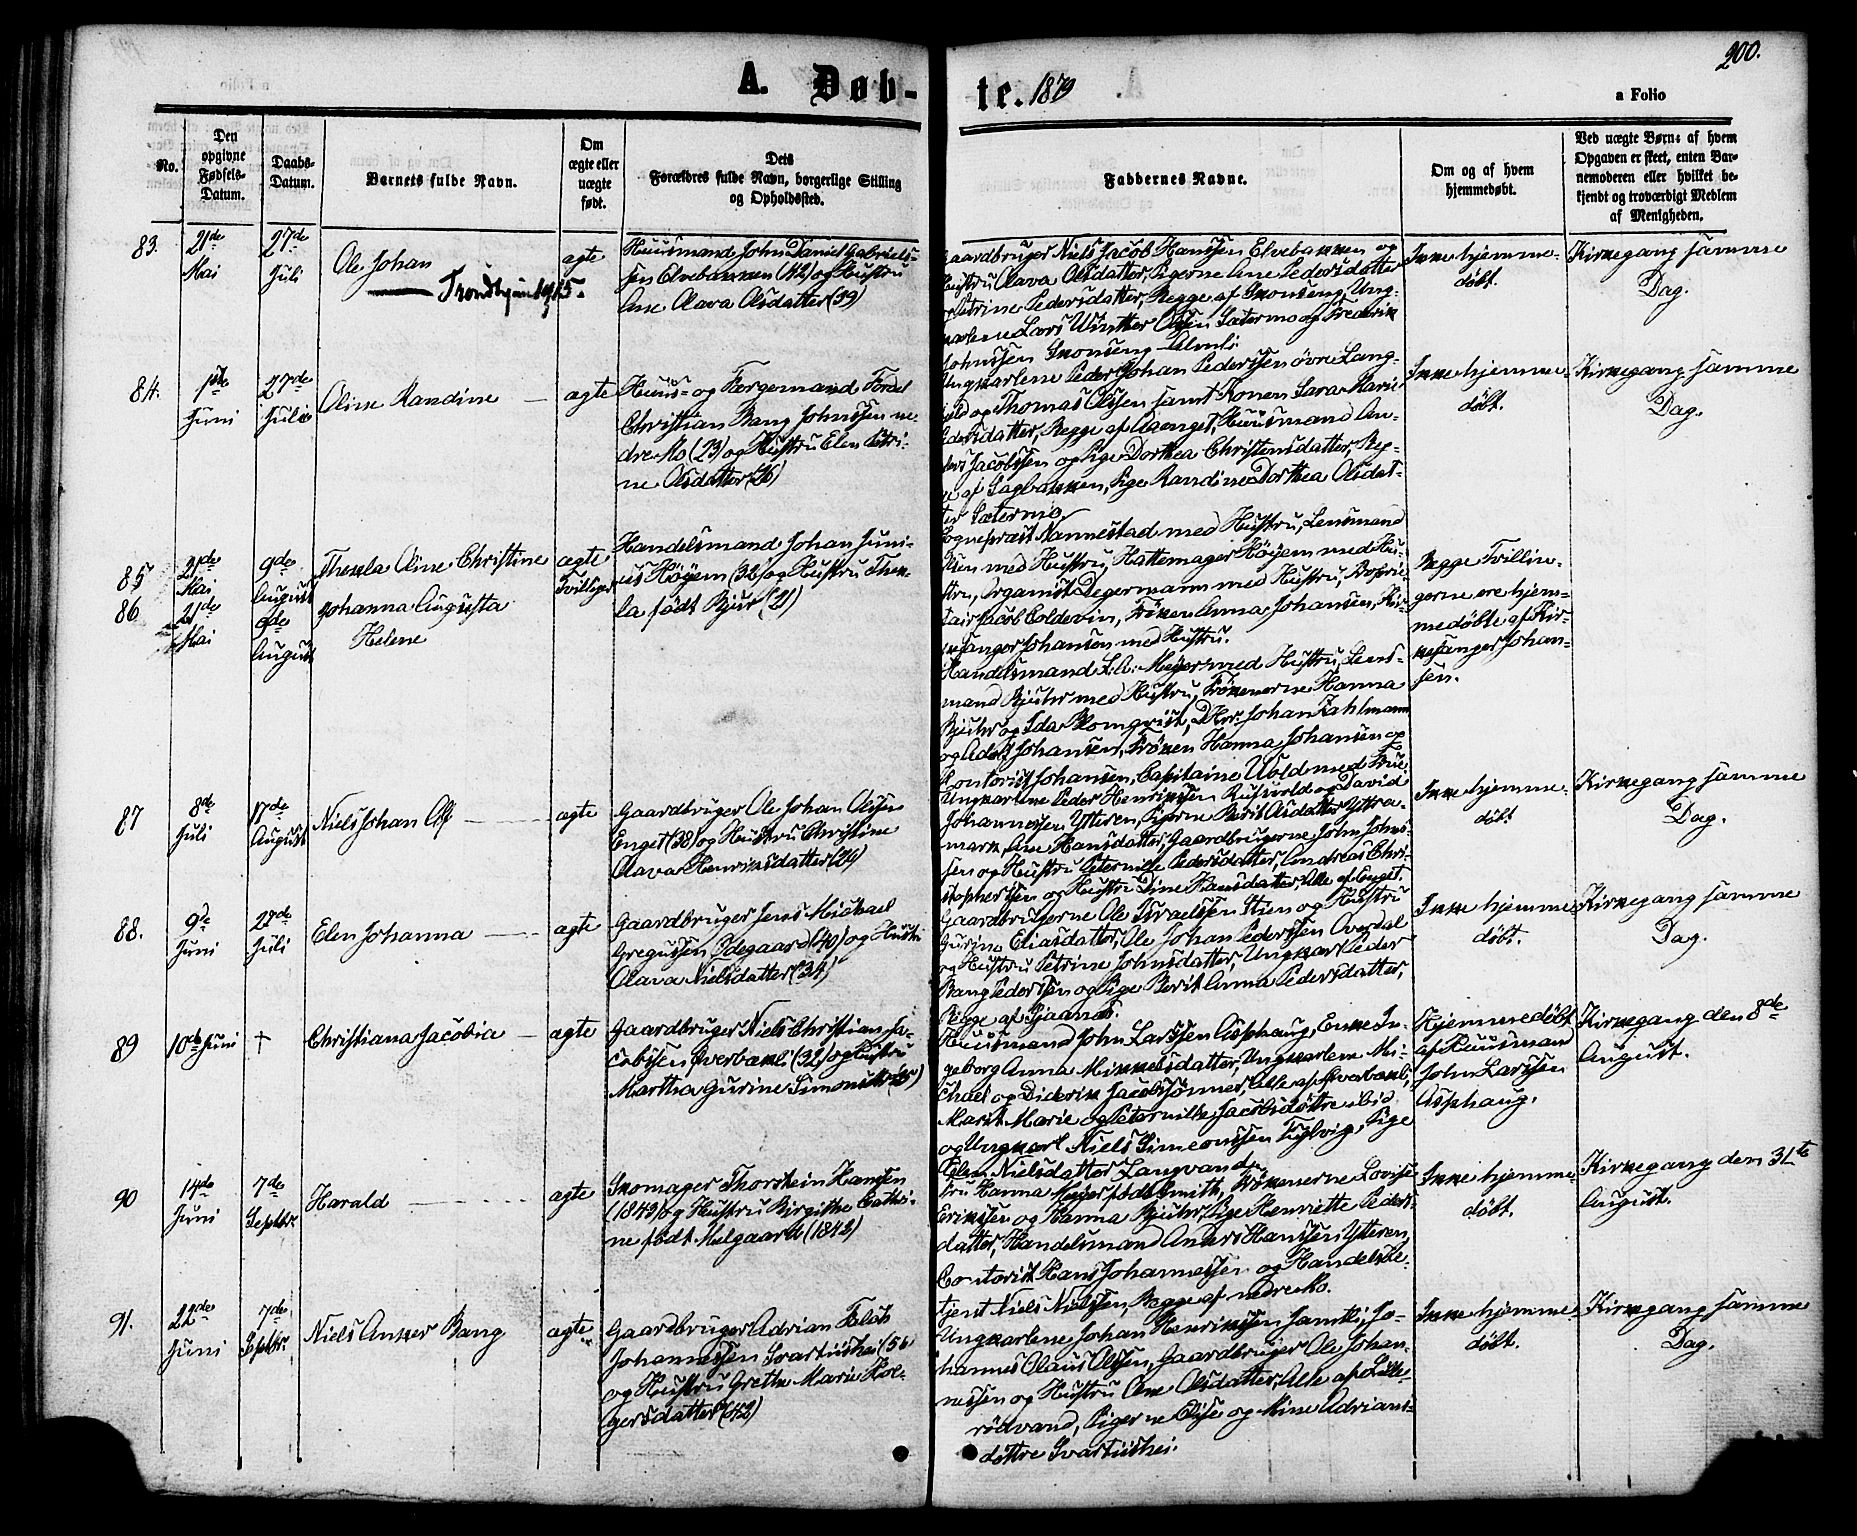 200.
A. Døb-
te. 1879
a Folio
No.
Den opgivne Fødsels-Datum.
Daabs-Datum.
Barnets fulde Navn.
Om ægte eller uægte født.
Dets Forældres fulde Navn, borgerlige Stilling og Opholdssted.
Faddernes Navne.
Om og af hvem hjemmedøbt.
Ved uægte Børn: af hvem Opgaven er skeet, enten Barnemoderen eller hvilket bekjendt og troværdigt Medlem af Menigheden.
83.
21de Mai
27de Juli
Ole Johan
Trondhjem
ægte
Huusmand John Daniel Gabriels-
sen Elvebakken (42) og Hustru
Ane Olava Olsdatter (39)
Gaardbruger Niels Jacob Hanssen Elvebakken og
Hustru Olava Olsdatter, Pigerne Ane Pedersdatter
og Petrine Pedersdatter, Begge af Skonseng, Ung-
karlene Lars Winther Olsen Sætermo og Frederik
Johnssen Skonseng-Almli.
Ikke hjemme-
døbt.
Kirkegang samme
Dag.
84.
1ste Juni
27de Juli
Oline Randine
ægte
Huus- og Færgemand Fordel
Christian Bang Johnssen ne-
dre Mo (23) og Hustru Elen Petri-
ne Olsdatter (26)
Ungkarlene Peder Johan Pederssen øvre Lang-
og Thomas Olssen samt Konen Sara Marie
Pedersdatter, Begge af Aaenget, Huusmand An-
ders Jacobssen og Pige Dorthea Christensdatter, Beg-
ge af Sagbakken, Pige Randine Dorthea Olsdat-
ter Sætermo
Ikke hjemme-
døbt.
Kirkegang samme
Dag.
85
21de Mai
9de August
Thekla Oline Christine
ægte
Tvillinger
Handelsmand Johan Juni-
us Høyem (32) og Hustru Thek-
la født Bjur (21)
Sogneprest Nannestad med Hustru, Lensmand
med Hustru, Hattemager Høyem med Hu-
stru, Organist Degermann med Hustru, Proprie-
tair Jacob Coldevin, Frøken Anna Johansen, Kir-
kesanger Johansen med Hustru.
Begge Tvillin-
gerne ere hjem-
medøbte af Kir-
kesanger Johan-
sen.
86
21de Mai
9de August
Johanna Augusta
Helene
Handelsmand L. A. Meyer med Hustru, Lens-
mand Bjuhr med Hustru, Frøknerne Hanna
Bjuhr og Ida Blomqvist, DHrr. Johan Zahlmann
og Adolf Johansen, Frøken Hanna Johansen og
Kontorist Johansen, Capitaine Wold med Frue
87
8de Juli
17de August
Niels Johan Olf
ægte
Gaardbruger Ole Johan Olssen
Enget (38) og Hustru Christine
Olava Henriksdatter (26)
Ungkarlene Peder Henrikssen Rufsvold og David
Johannessen Ytteren, Pigerne Berit Olsdatter Yttra-
mark, Ane Hansdatter, Gaardbrugerne John Johns-
sen og Hustru Peternille Pedersdatter, Andreas Chri-
stopherssen og Hustru Dine Hansdatter, Alle af Enget.
Ikke hjemme-
døbt
Kirkegang samme
Dag.
88.
9de Juni
28de Juli
Elen Johanna
ægte
Gaardbruger Jens Michael
Gregussen Ødegaard (40) og Hustru
Olava Nielsdatter (34)
Gaardbrugerne Ole Israelssen Stien og Hustru
Gurine Eliasdatter, Ole Johan Pederssen Overdal
og Hustru Petrine Johnsdatter, Ungkarl Peder
Bang Pederssen og Pige Berit Anna Pedersdatter,
Begge af Gjaanæs.
Ikke hjemme-
døbt.
Kirkegang samme
Dag.
89
10de Juni
†
Christiana Jacobia
ægte
Gaardbruger Niels Christian Ja-
cobssen Hverbakk (32) og Hustru
Martha Gurine Simonsdtr (25)
Huusmand John Larssen Asphaug, Enke In-
geborg Anna Mikkelsdatter, Ungkarlene Mi-
chael og Diderik Jacobssønner, Alle af Hverbakk,
Marit Marie og Peternille Jacobsdøttre ibid.
og Ungkarl Niels Simeonssen Fuglvig, Pige
Elen Nielsdatter Langvand.
Hjemmedøbt
af Huusmand
John Larssen
Asphaug.
Kirkegang den 8de
August.
90
14de Juni
7de Septbr.
Harald
ægte
Skomager Thorstein Hansen
(1849) og Hustru Birgithe Cathri-
ne født Melgaard (1842)
Fru Hanna Meyer født Smith, Frøknerne Lovise
Erikssen og Hanna Bjuhr, Pige Henriette Peders-
datter, Handelsmand Anders Hanssen Ytteren,
Contorist Hans Johannessen og Handelsbe-
tjent Niels Nielssen, Begge af nedre Mo.
Ikke hjemme-
døbt.
Kirkegang den 31te
August.
91.
22de Juni
7de Septbr.
Niels Anker Bang
ægte
Gaardbruger Adrian Falch
Johannessen Svartishei (56
og Hustru Grethe Marie Hol-
gersdatter (42)
Ungkarlene Johan Henrikssen Jamtli, Jo-
hannes Olaus Olssen, Gaardbruger Ole Johan-
nessen og Hustru Ane Olsdatter, Alle af Lille-
rødvand, Pigerne Elise og Mine Adrians-
døttre Svartishei.
Ikke hjemme-
døbt.
Kirkegang samme
Dag.